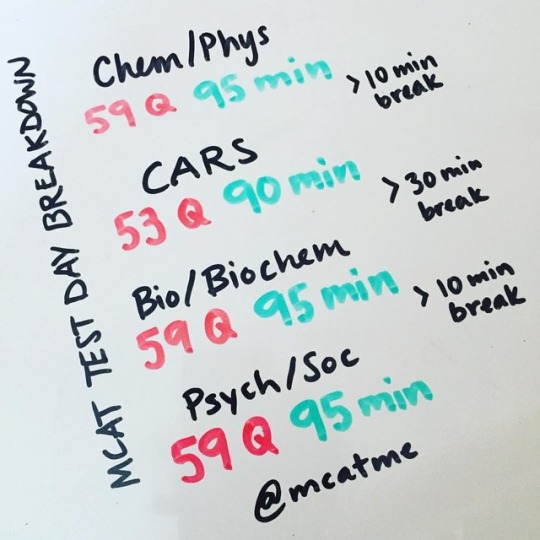 MCAT TEST DAY BREAKDOWN
Chem/Phys
59 Q 95 min
> 10 min
break
CARS
53 Q 90 min
> 30 min
break
Bio/Biochem
59 Q 95 min
> 10 min
break
Psych/Soc
59 Q 95 min
@mcatme